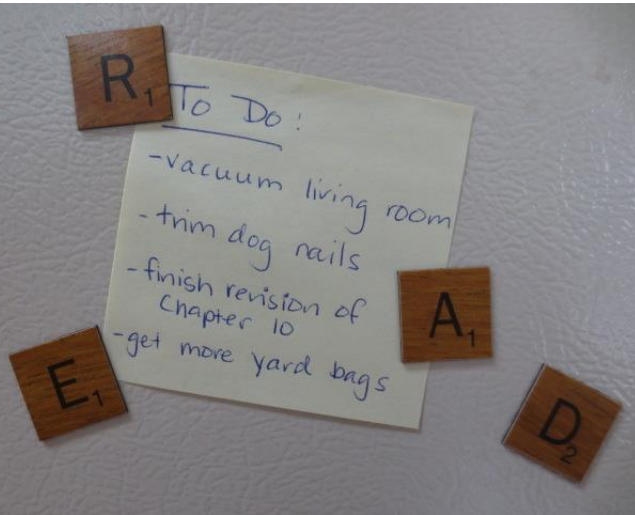 R1
To Do:
-vacuum living room
-trim dog nails
-finish revision of
Chapter 10
-get more yard bags
A1
E1
D2